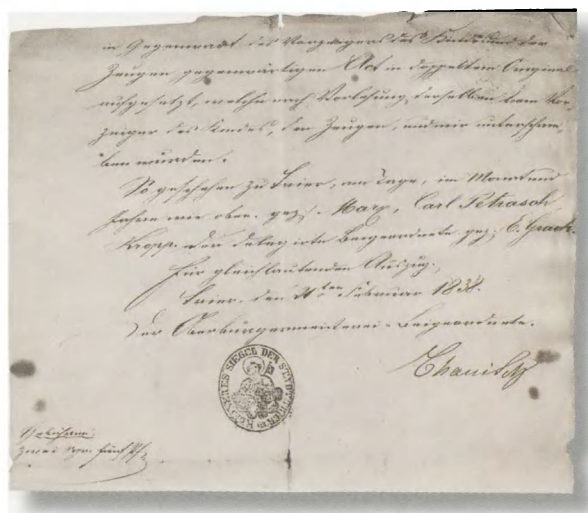 in Gegenwart des Vorzeigers des Kindes und der
Zeugen gegenwärtigen Act in doppeltem Original
aufgesetzt, welche nach Vorlesung derselben dem Vor-
zeiger des Kindes, den Zeugen, und mir unterschrie-
ben wurden.
So geschehen zu Trier, am Tage, im Monat und
Jahre wie oben. gez. Marx, Carl Petrasch
Kropp. der delegirte Beigeordnete gez: E. Grach.
Für gleichlautenden Auszug.
Trier den Februar 1838.
Der Oberbürgermeisterei-Beigeordnete.
SIEGEL DER STADT TRIER
zwei Sgr. fünf Pf